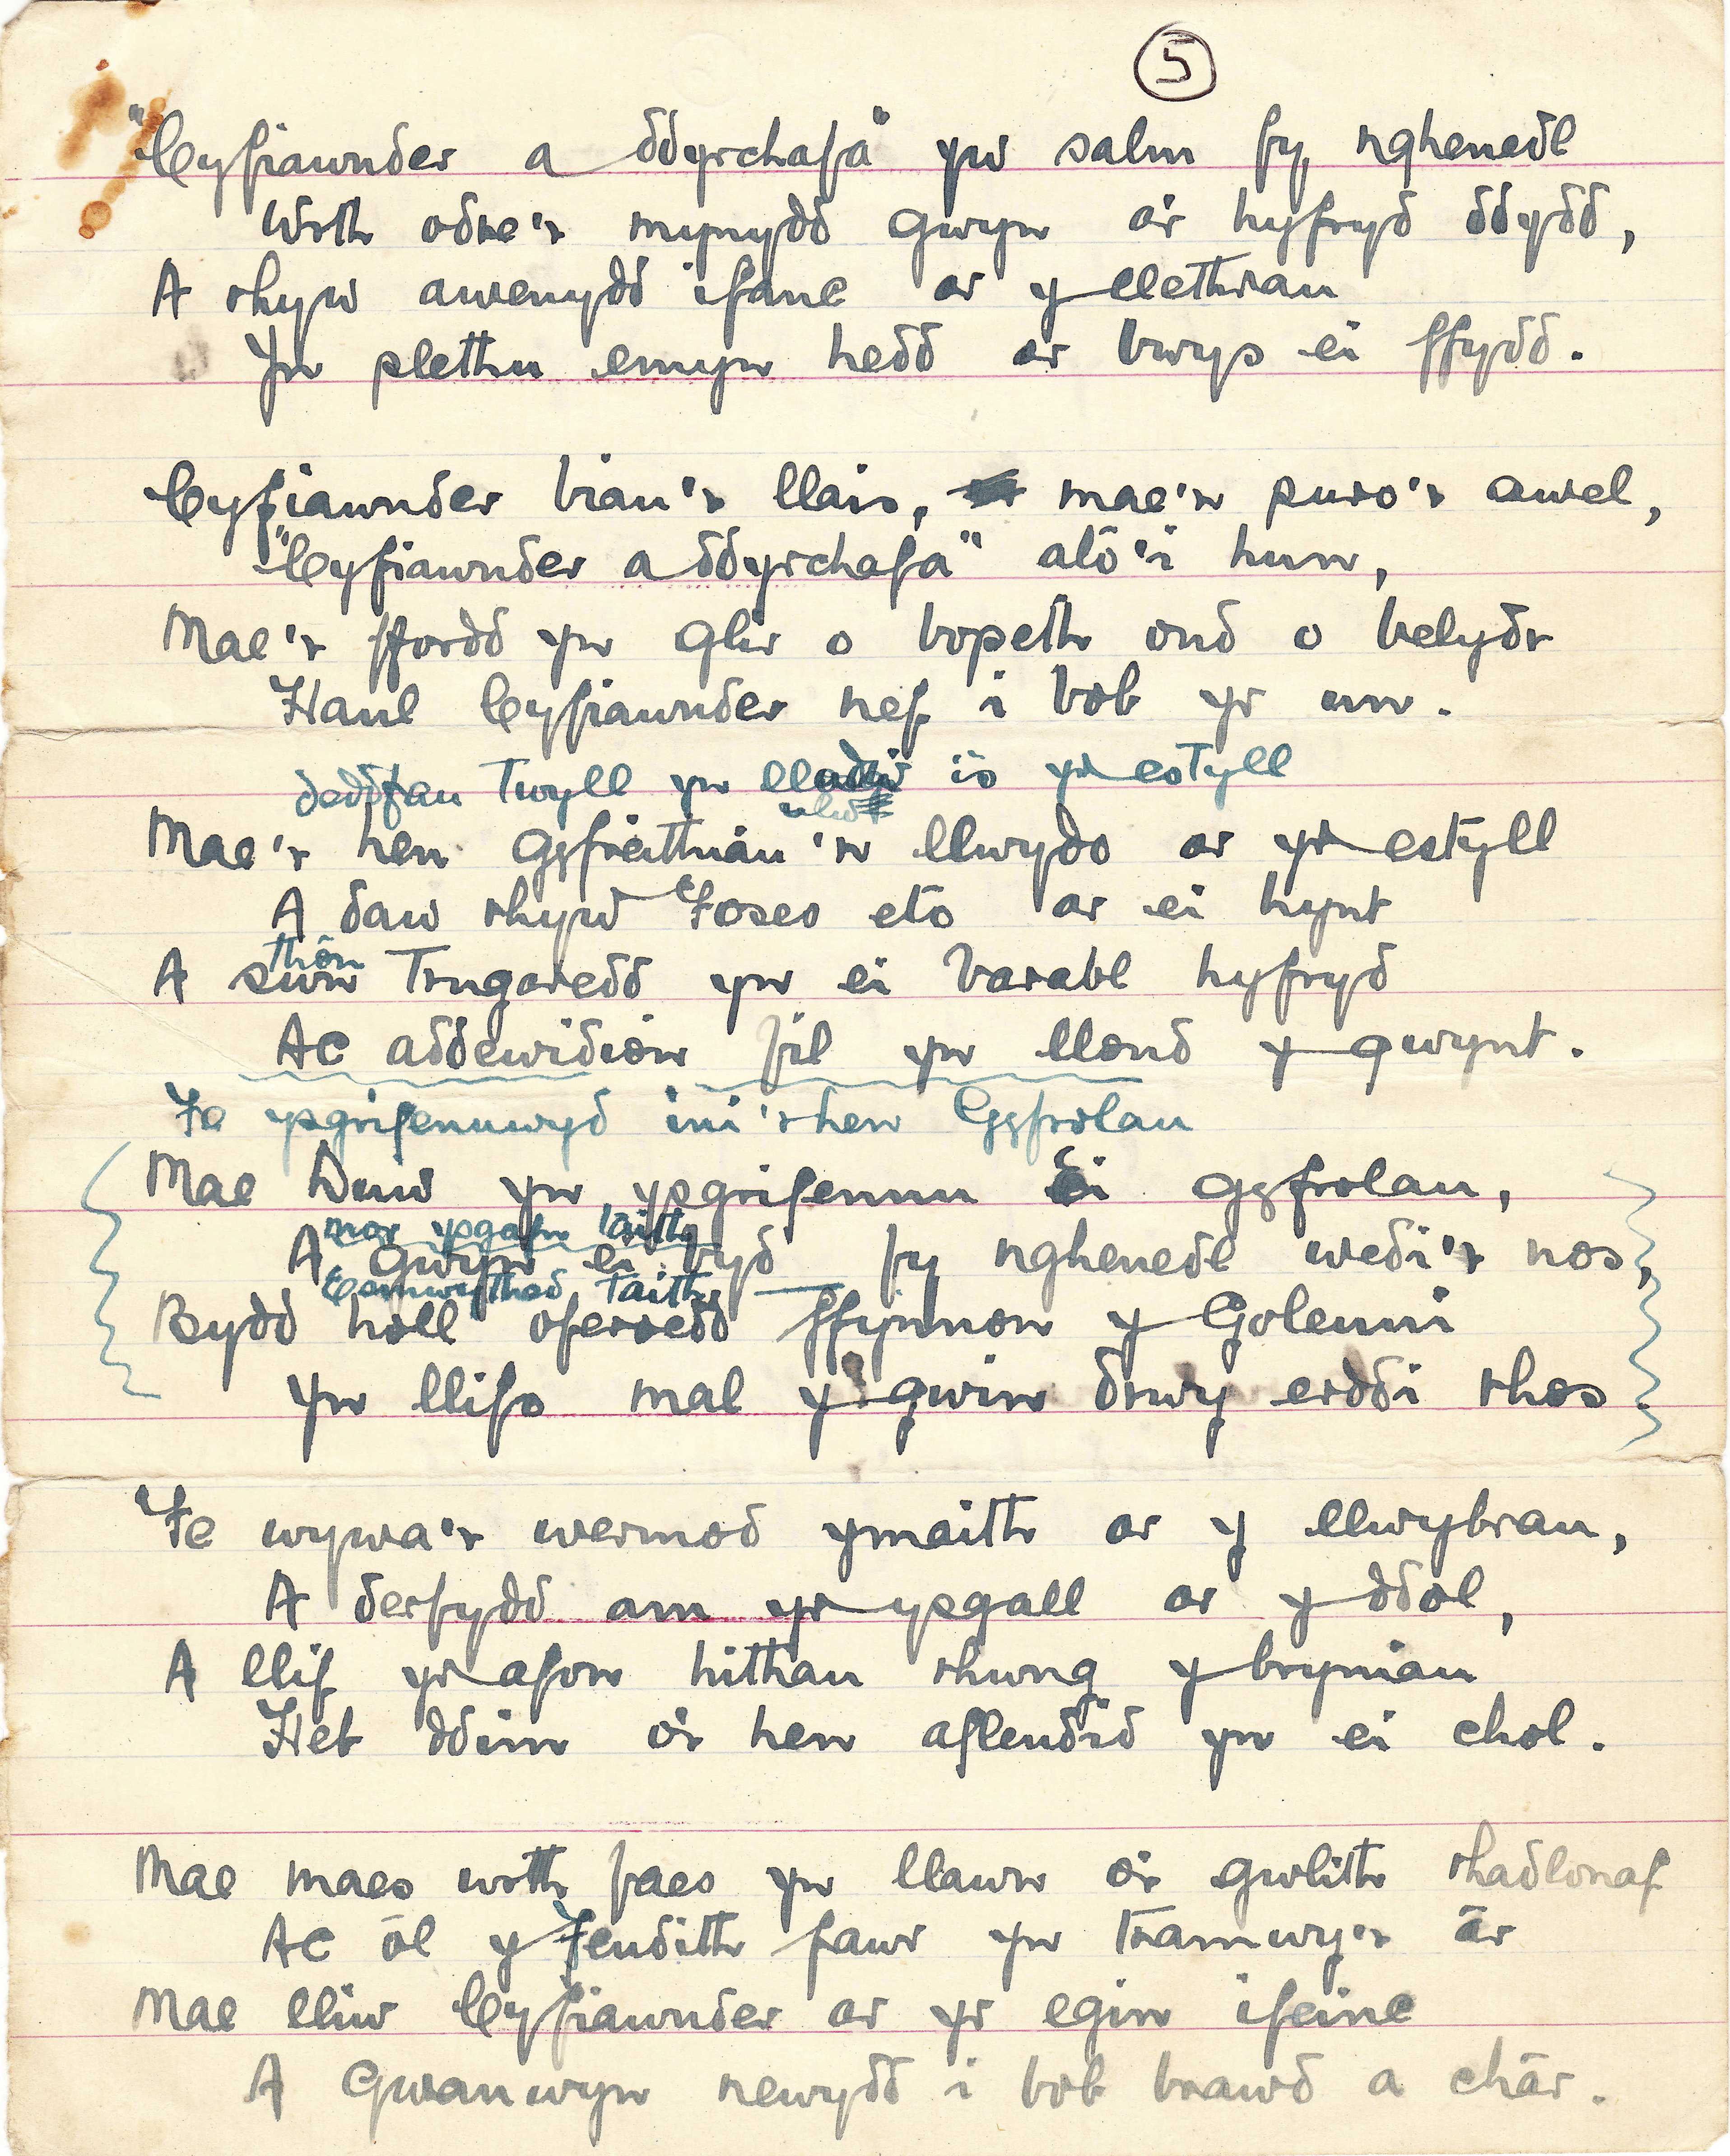 5
"Cyfiawnder a ddyrchafa" yw salm fy nghenedl
Wrth odre'r mynydd gwyn o'r hyfryd ddydd,
A rhyw awenydd ifanc ar y llethrau
Yn plethu emyn hedd ar bwys ei ffydd.
Cyfiawnder biau'r llais, mae'n puro'r awel,
"Cyfiawnder a ddyrchafa" ato'i hun,
Mae'r ffordd yn glir o bopeth ond o belydr
Haul Cyfiawnder nef i bob yr un.
deddfau Twyll yn is yr estyll
Mae'r hen gyfreithiau'n llwydo ar yr estyll
A daw rhyw Foses eto ar ei hynt
thôn
A swn Trugaredd yn ei barabl hyfryd
Ac addewidion fil yn llond y gwynt.
Fe ysgrifennwyd ini'r hen Gyfrolau
Mae Duw yn ysgrifennu Ei gyfrolau,
mor ysgafn taith
A gwyn ei byd fy nghenedl wedi'r nos,
Esmwythed taith
Bydd holl oferoedd ffynnon y Goleuni
Yn llifo mal y gwin drwy erddi rhos.
Fe wywa'r wermod ymaith ar y llwybrau,
A derfydd am yr ysgall ar y ddol,
A llif yr afon hithau rhwng y bryniau
Heb ddim o'r hen aflendid yn ei chol.
Mae maes wrth faes yn llawn o'r gwlith rhadlonaf
Ac ôl y Fendith fawr yn tramwy'r âr
Mae lliw Cyfiawnder ar yr egin ifainc
A Gwanwyn newydd i bob brawd a châr.